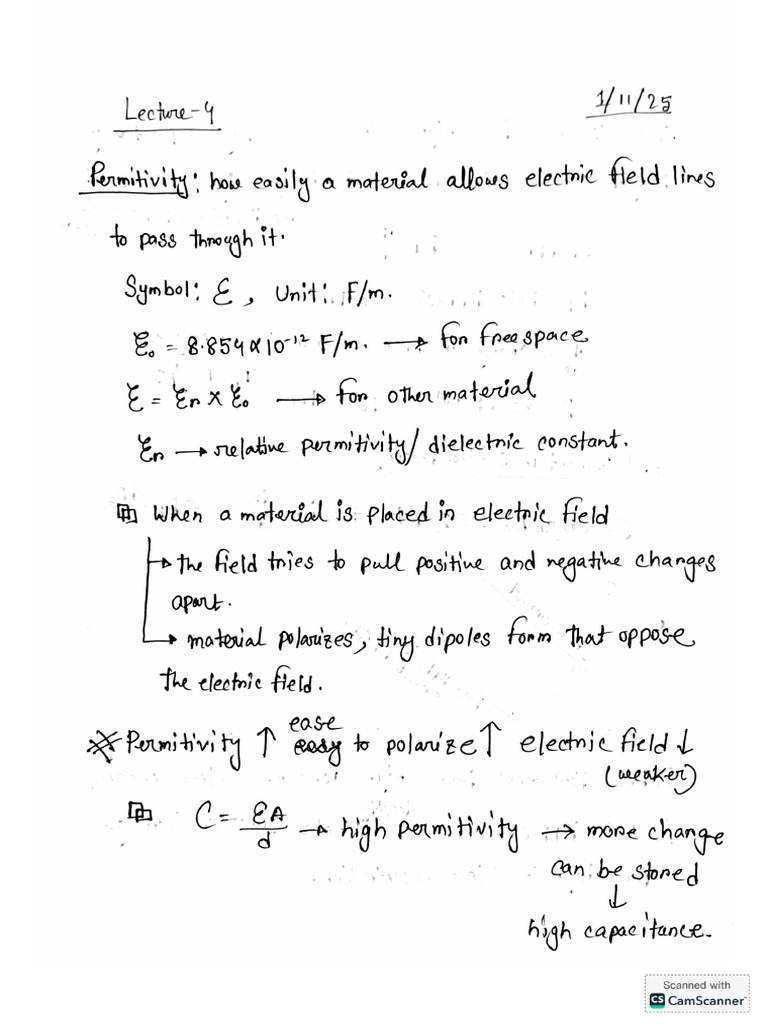 Lecture-4
1/11/25
Permitivity: how easily a material allows electric field lines
to pass through it.
Symbol: ε, Unit: F/m.
ε₀ = 8.854×10⁻¹² F/m. → for free space
ε = εr × ε₀ → for other material
εr → relative permitivity/dielectric constant.
When a material is placed in electric field
→ the field tries to pull positive and negative charges
apart.
→ material polarizes, tiny dipoles form that oppose
the electric field.
ease
* Permitivity ↑ easy to polarize ↑ electric field ↓
(weaker)
C = εA/d → high permitivity → more charge
can be stored
↓
high capacitance.
Scanned with
CS CamScanner